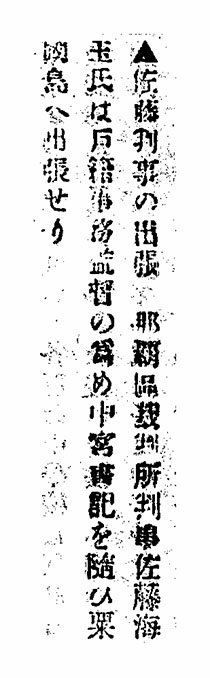 ▲佐藤判事の出張 那覇區裁判所判事佐藤海
玉氏は戸籍事務監督の爲め中宮書記を隨ひ粟
國島へ出張せり